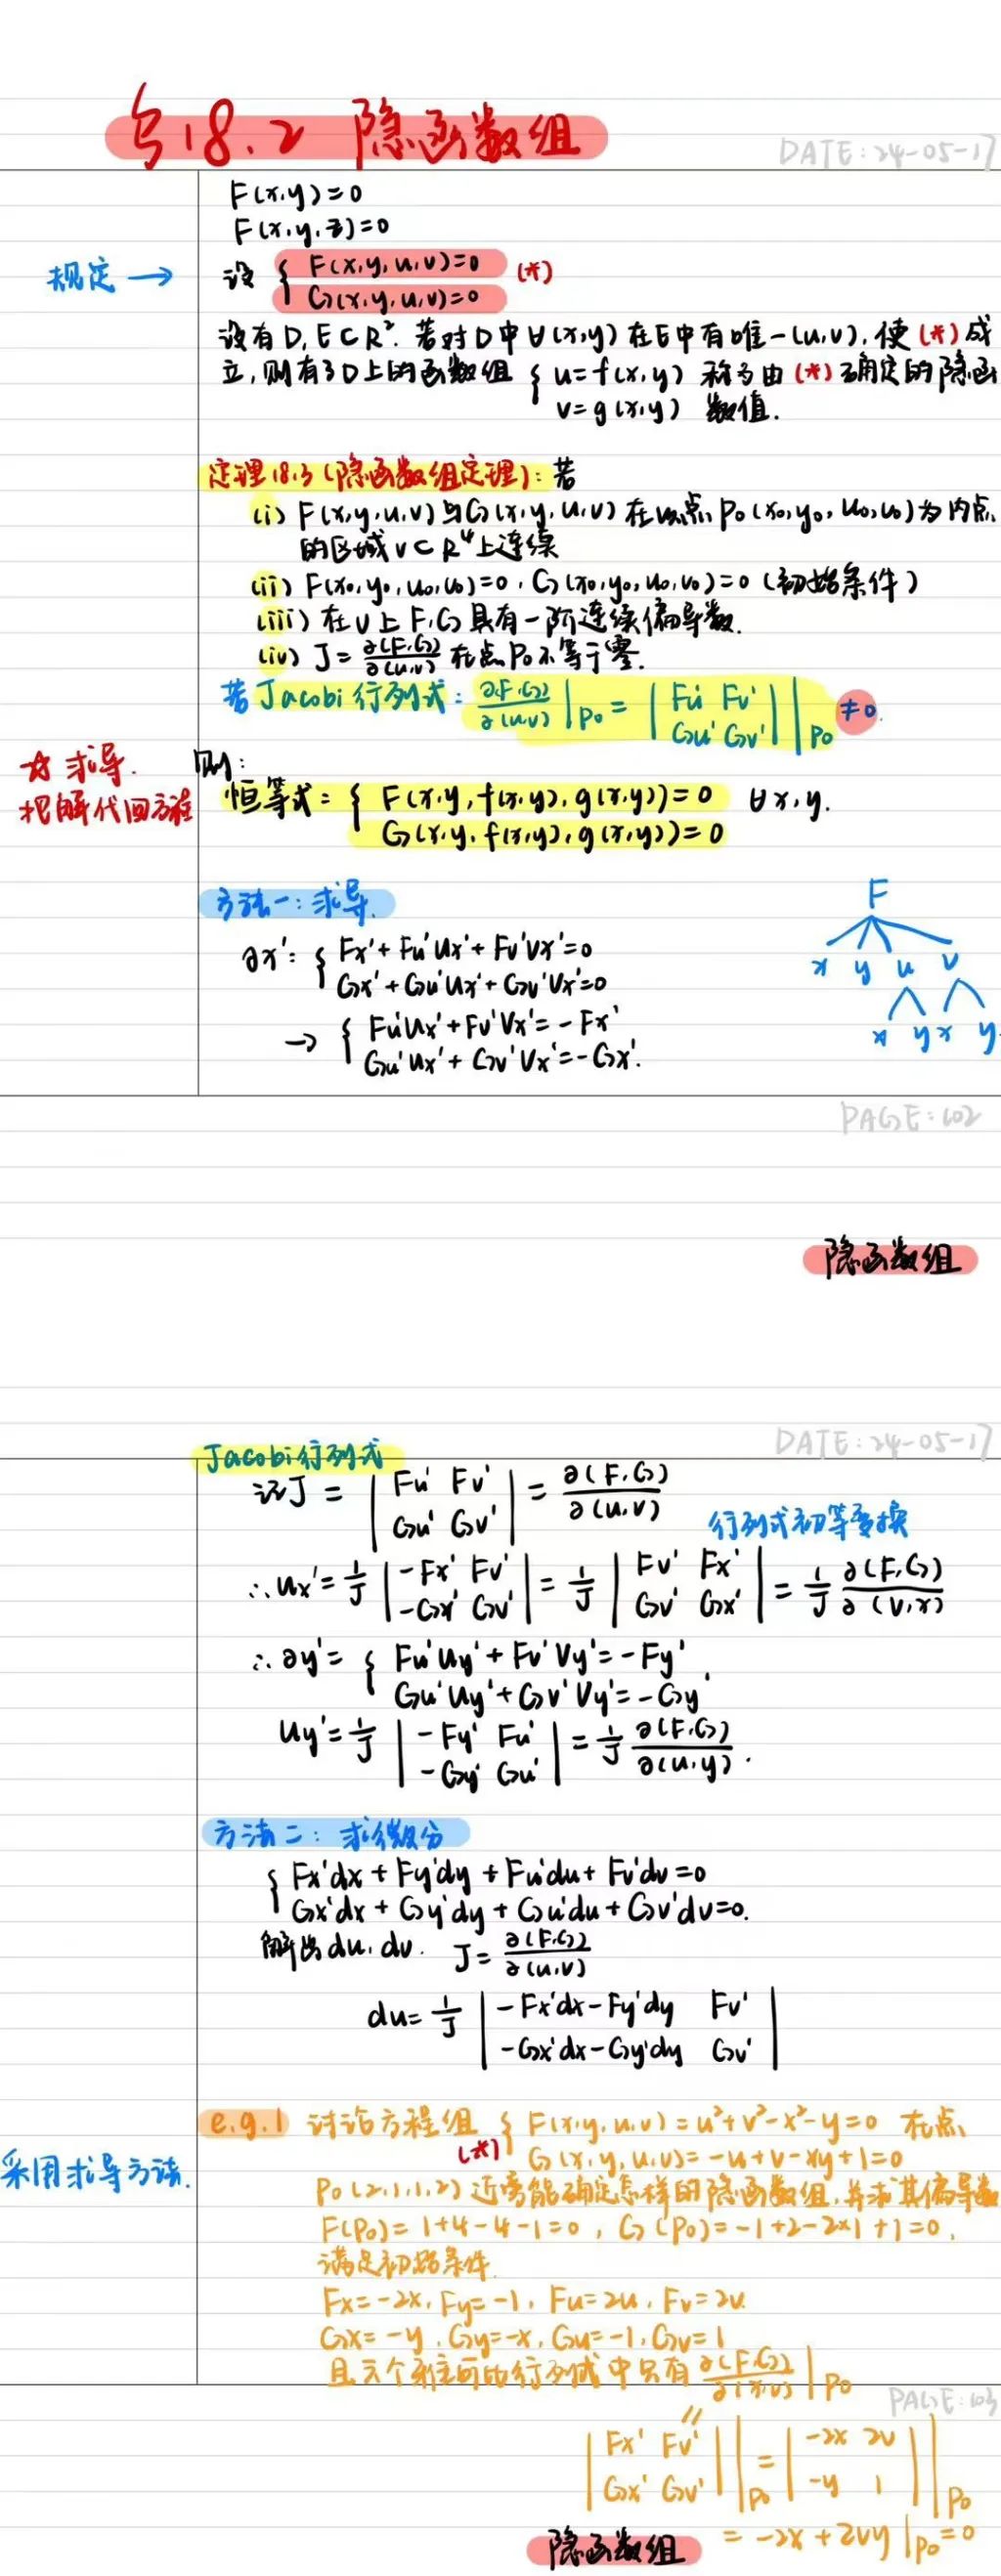 §18.2 隐函数组
DATE: 24-05-17
F(x,y)=0
F(x,y,z)=0
规定 → 设 { F(x,y,u,v)=0 (*)
G(x,y,u,v)=0
设有D,E⊂R². 若对D中∀(x,y)在E中有唯一(u,v),使(*)成
立,则有了D上的函数组 { u=f(x,y) 称为由(*)确定的隐函
v=g(x,y) 数值.
定理18.3(隐函数组定理): 若
(i) F(x,y,u,v)与G(x,y,u,v)在以点P0(x0,y0,u0,v0)为内点
的区域V⊂R⁴上连续
(ii) F(x0,y0,u0,v0)=0, G(x0,y0,u0,v0)=0 (初始条件)
(iii) 在V上F,G具有一阶连续偏导数.
(iv) J= ∂(F,G)/∂(u,v) 在点P0不等于零.
若Jacobi行列式: ∂(F,G)/∂(u,v) |P0 = | Fu' Fv' | |P0 ≠0.
| Gu' Gv' |
☆ 求导.
把解代回方程
则:
恒等式: { F(x,y,f(x,y),g(x,y))=0 ∀x,y.
G(x,y,f(x,y),g(x,y))=0
方法一: 求导.
∂x': { Fx'+Fu'Ux'+Fv'Vx'=0
Gx'+Gu'Ux'+Gv'Vx'=0
→ { Fu'Ux'+Fv'Vx'=-Fx'
Gu'Ux'+Gv'Vx'=-Gx'.
F
x y u v
x y x y
PAGE: 102
隐函数组
DATE: 24-05-17
Jacobi行列式
记J = | Fu' Fv' | = ∂(F,G)/∂(u,v)
| Gu' Gv' |
行列式初等变换
∴ux'=1/J | -Fx' Fv' | = 1/J | Fv' Fx' | = 1/J ∂(F,G)/∂(v,x)
| -Gx' Gv' | | Gv' Gx' |
∴∂y'= { Fu'Uy'+Fv'Vy'=-Fy'
Gu'Uy'+Gv'Vy'=-Gy'
Uy'=1/J | -Fy' Fu' | = 1/J ∂(F,G)/∂(u,y).
| -Gy' Gu' |
方法二: 求微分
{ Fx'dx+Fy'dy+Fu'du+Fv'dv=0
Gx'dx+Gy'dy+Gu'du+Gv'dv=0.
解出du,dv. J= ∂(F,G)/∂(u,v)
du=1/J | -Fx'dx-Fy'dy Fv' |
| -Gx'dx-Gy'dy Gv' |
e.g.1 讨论方程组 { F(x,y,u,v)=u²+v²-x²-y=0 在点
(*) G(x,y,u,v)=-u+v-xy+1=0
采用求导方法.
P0(2,1,1,2)近旁能确定怎样的隐函数组,并求其偏导数
F(P0)=1+4-4-1=0, G(P0)=-1+2-2×1+1=0,
满足初始条件.
Fx=-2x, Fy=-1, Fu=2u, Fv=2v.
Gx=-y, Gy=-x, Gu=-1, Gv=1
且六个雅可比行列式中只有 ∂(F,G)/∂(x,v) |P0
PAGE: 103
=
| Fx' Fv' | |P0 = | -2x 2v | |P0
| Gx' Gv' | | -y 1 |
= -2x+2vy |P0=0
隐函数组